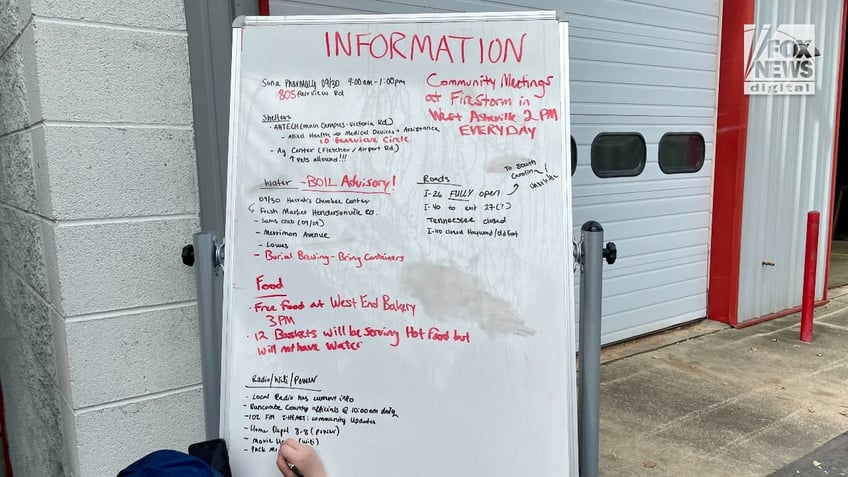 FOX
NEWS
digital
INFORMATION
Sona PHARMACY 09/30 9:00am-1:00pm
805 Fairview Rd
Community Meetings
at FireStorm in
West Asheville 2 PM
EVERYDAY
Shelters
- ABTECH (main Campus - Victoria Rd)
- Allied Health → Medical Devices + Assistance
10 Circle
- Ag Center (Fletcher / Airport Rd)
↑ Pets allowed!!!
Water - BOIL Advisory!
09/30 Harrah's Cherokee Center
Fresh Market Hendersonville Rd.
- Sams Club (09/29)
- Merrimon Avenue
- Lowes
- Burial Brewing - Bring Containers
Roads
I-26 FULLY open
To South
Carolina
I-40 to exit 27(?)
Tennessee closed
I-40 closed Haywood/Old Fort
Food
· Free Food at West End Bakery
3 PM
· 12 Baskets will be serving Hot Food but
will not have water
Radio/Wifi/Power
- Local Radio has current info
- Buncombe County officials @ 10:00am daily
- 102 FM I-HEART: community updates
- Home Depot 8-8 (power)
- Movie (wifi)
- Pack